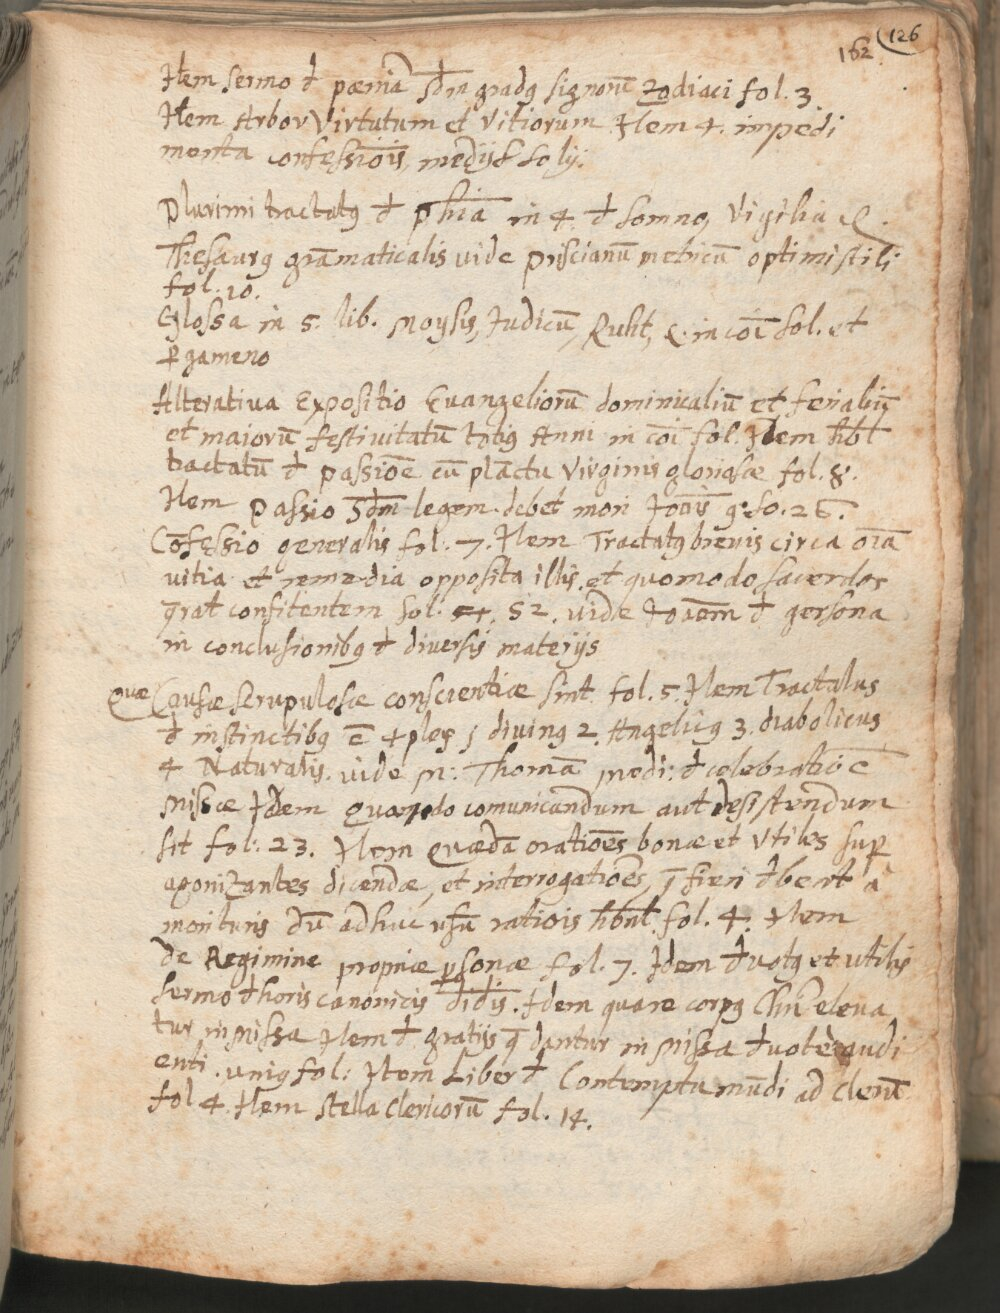 162 (126
Item sermo đ pœnia sđm gradꝯ signorū zodiaci fol. 3
Item Arbor Virtutum et Vitiorum Item 4. impedi
menta confessiōis, medijs soly.
Plurimi tractatꝯ đ phīa in 4. đ somno, Vigilia &.
Thesaurꝯ grāmaticalis vide Priscianū metricū optimi stili
fol. 10.
Glossa in 5. lib. Moysis, Iudicū, Ruht, &. in coī fol. et
ꝑgameno
Alterativa Expositio Euangeliorū dominicaliū et ferialiū
et maiorū festivitatū totiꝯ Anni in coī fol. Idem hƀt
tractatū đ Passiōe cū plāctu Virginis gloriosæ fol. 8.
Item Passio sđm legem debet mori Ioāis 9. fo. 26.
Cōfessio generalis fol. 7. Item Tractatꝯ brevis circa oīa
vitia et remedia opposita illis, et quomodo sacerdos
q̄rat confitentem fol. 52. vide Ioāem đ gersona
in conclusionibꝯ đ diversis materijs
Quæ Causæ scrupulosæ conscientiæ sint fol. 5 Item Tractatus
đ instinctibꝯ ē 4plex 1 divinꝯ 2. Angelicꝯ 3. diabolicus
4 Naturalis. vide M: Thomā medi: đ celebratiōe
Missæ Idem Quando comunicandum aut desistendum
sit fol: 23. Item Quædā oratiōes bonæ et Vtiles suꝑ
agonizantes dicendæ, et interrogatiōes, q̄ fieri đbent à
morituris dū adhuc usū ratiōis hn̄t. fol. 4. Item
de Regimine propriæ ꝑsonæ fol. 7. Idem đvotꝯ et utilis
sermo đ horis canonicis dīdis. Idem quare corpꝯ Chrī eleva
tur in Missa Item đ gratijs q̄ dantur in Missa đvotè audi
enti. uniꝯ fol: Item Liber đ Contemptu mūdi ad Clerū
fol 4. Item Stella Clericorū fol. 14.